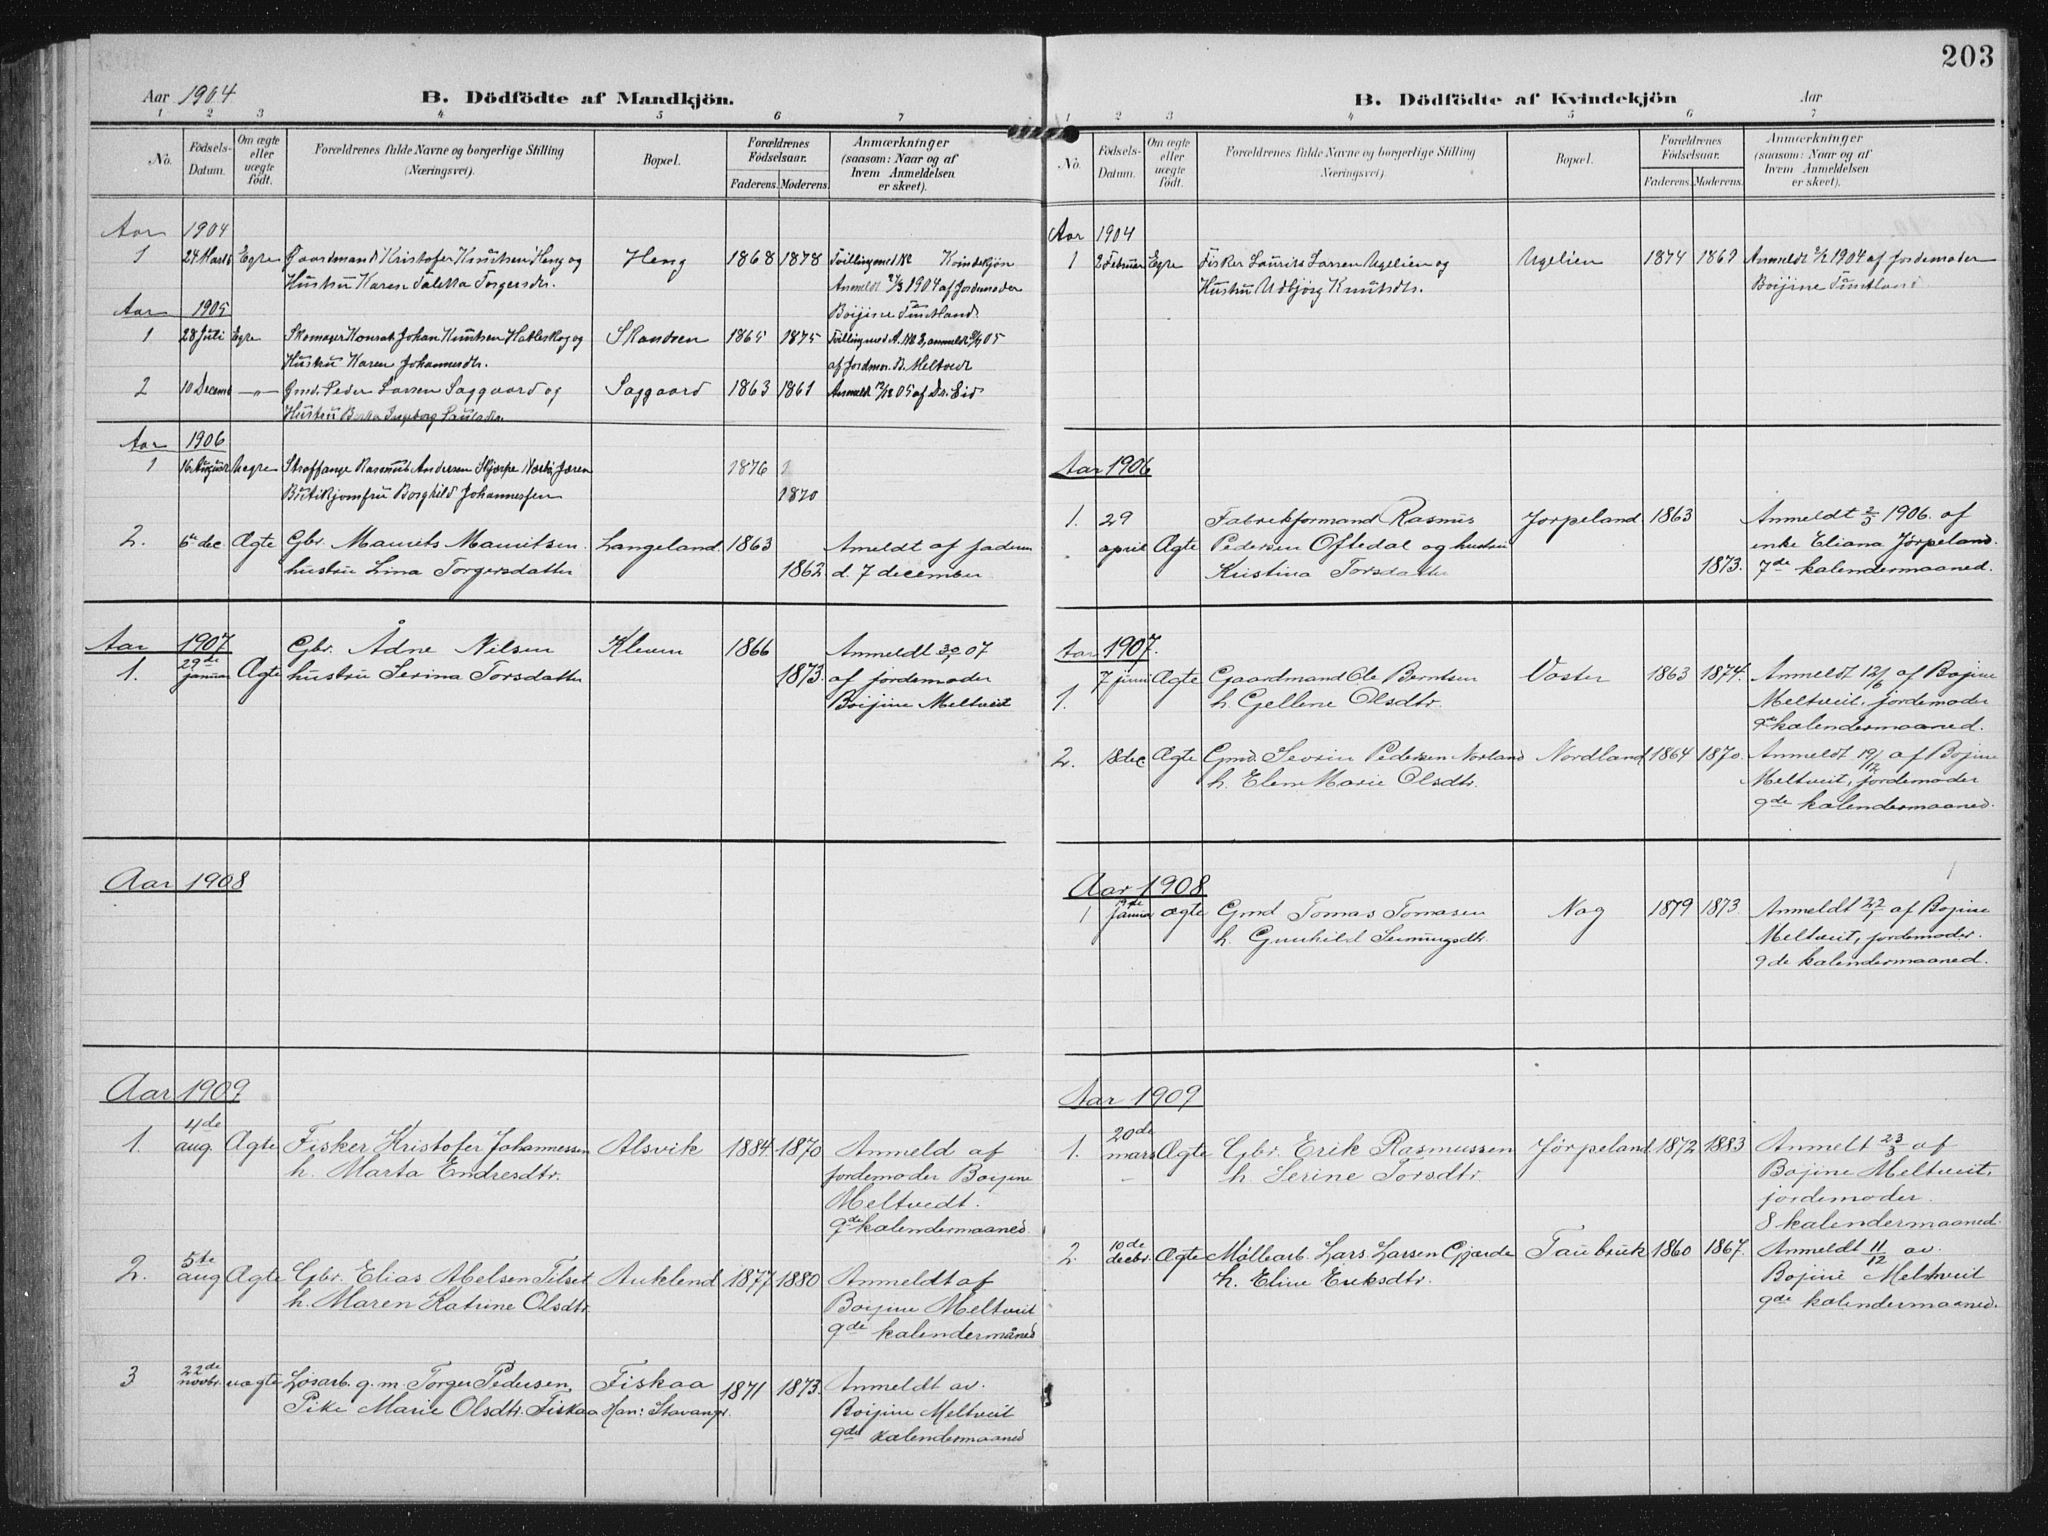 203
Aar 1904
B. Dödfödte af Mandkjön.
1 2 3 4 5 6 7
No.
Födsels-Datum.
Om ægte eller uægte födt.
Forældrenes fulde Navne og borgerlige Stilling (Næringsvei).
Bopæl.
Forældrenes Födselsaar.
Faderens. Moderens.
Anmærkninger (saasom: Naar og af hvem Anmeldelsen er skeet).
Aar 1904
1 24 Marts Egte Gaardmand Kristofer Knutsen Heng og Heng 1868 1878 Tvilling med No Kvindekjön
Hustru Karen Taletta Torgersdtr. Anmeldt 27/3 1904 af Jordemoder
Aar 1905 Boijine Tuntland.
1 28 Juli Egte Skomager Konrad Johan Knutsen Hatleskog og Skandven 1865 1875 Tvilling med A. No 8, anmeldt 05
Hustru Karen Johannesdtr. af Jordmor. B. Meltvedt
2 10 Decemb —"— Gmd. Peder Larsen Saggaard og Saggaard 1863 1861 Anmeldt 12/12 05 af Dr. Eid
Hustru Berta Ingeborg Paulsdtr.
Aar 1906
1 16 August Uegte Straffange Rasmus Andersen Skjærpe Nærbø Jæren 1876
Butikjomfru Borghild Johannessen 1870
2. 6te dec Ægte Gbr. Maurits Mauritsen. Langeland. 1863 Anmeldt af faderen
hustru Lina Torgersdatter 1862 d. 7 december
Aar 1907 Gbr. Ådne Nilsen Kleven 1866 Anmeldt 30/1 07
1. 29de januar Ægte hustru Serina Torsdatter 1873. af jordemoder
Boijine Meltveit
Aar 1908
Aar 1909
1. 4de aug. Ægte Fisker Kristofer Johannessen Alsvik 1884 1870 Anmeld af
h. Marta Endresdtr. jordemoder Boijine
Meltvedt.
9de kalendermaaned
2. 5te aug Ægte Gbr. Elias Abelsen Tilset Auklend 1877 1880 Anmeldt af
h. Maren Katrine Olsdtr. Boijine Meltveit
9de kalendermåned
3 22de novbr. uægte Løsarb. g. m. Torger Pedersen, Fiskaa 1871 1873. Anmeldt av
Pike Marie Olsdtr. Fiskaa Han: Stavanger. Boijine Meltveit
9de kalendermaaned
B. Dödfödte af Kvindekjön
Aar
1 2 3 4 5 6 7
No.
Födsels-Datum.
Om ægte eller uægte födt.
Forældrenes fulde Navne og borgerlige Stilling (Næringsvei).
Bopæl.
Forældrenes Födselsaar.
Faderens. Moderens.
Anmærkninger (saasom: Naar og af hvem Anmeldelsen er skeet).
Aar 1904
1 2 Februar Egte Fisker Laurits Larsen Ugelien og Ugelien 1874 1869 Anmeldt 1904 af Jordemoder
Hustru Udbjørg Knutsdtr. Boijine Tuntland
Aar 1906
1. 29 Fabrikformand Rasmus Jørpeland. 1863 Anmeldt 2/5 1906. af
april Ægte Pedersen Oftedal og hustru enke Eliana Jørpeland.
Kristina Torsdatter 1873. 7de kalendermaaned.
Aar 1907.
1. 7 juni Ægte Gaardmand Ole Berntsen Voster 1863 1874. Anmeldt 12/6 af Bojine
h. Gellene Olsdtr. Meltveit, jordemoder
9de kalendermaaned.
2. 18 dec Ægte Gmd. Sevrin Pedersen Norland Nordland 1864 1870. Anmeldt 19/12 af Bojine
h. Elen Marie Olsdtr. Meltveit, jordemoder
9de kalendermaaned.
Aar 1908
1 19de januar ægte Gmd Tomas Tomasen Nag 1879 1873. Anmeldt 22/1 af Bojine
h. Gunhild Semmingsdtr. Meltveit, jordemoder.
9de kalendermaaned.
Aar 1909
1. 20de mars Ægte Gbr. Erik Rasmussen Jørpeland 1872 1883 Anmelt 23/3 af
h. Serine Torsdtr. Bojine Meltveit,
jordemoder.
8 kalendermaaned.
2. 10de decbr. Ægte Møllearb. Lars Larsen Gjærde Taubruk 1860 1867. Anmeldt 11/12 av
h. Eline Eriksdtr. Bojine Meltveit
9de kalendermaaned.